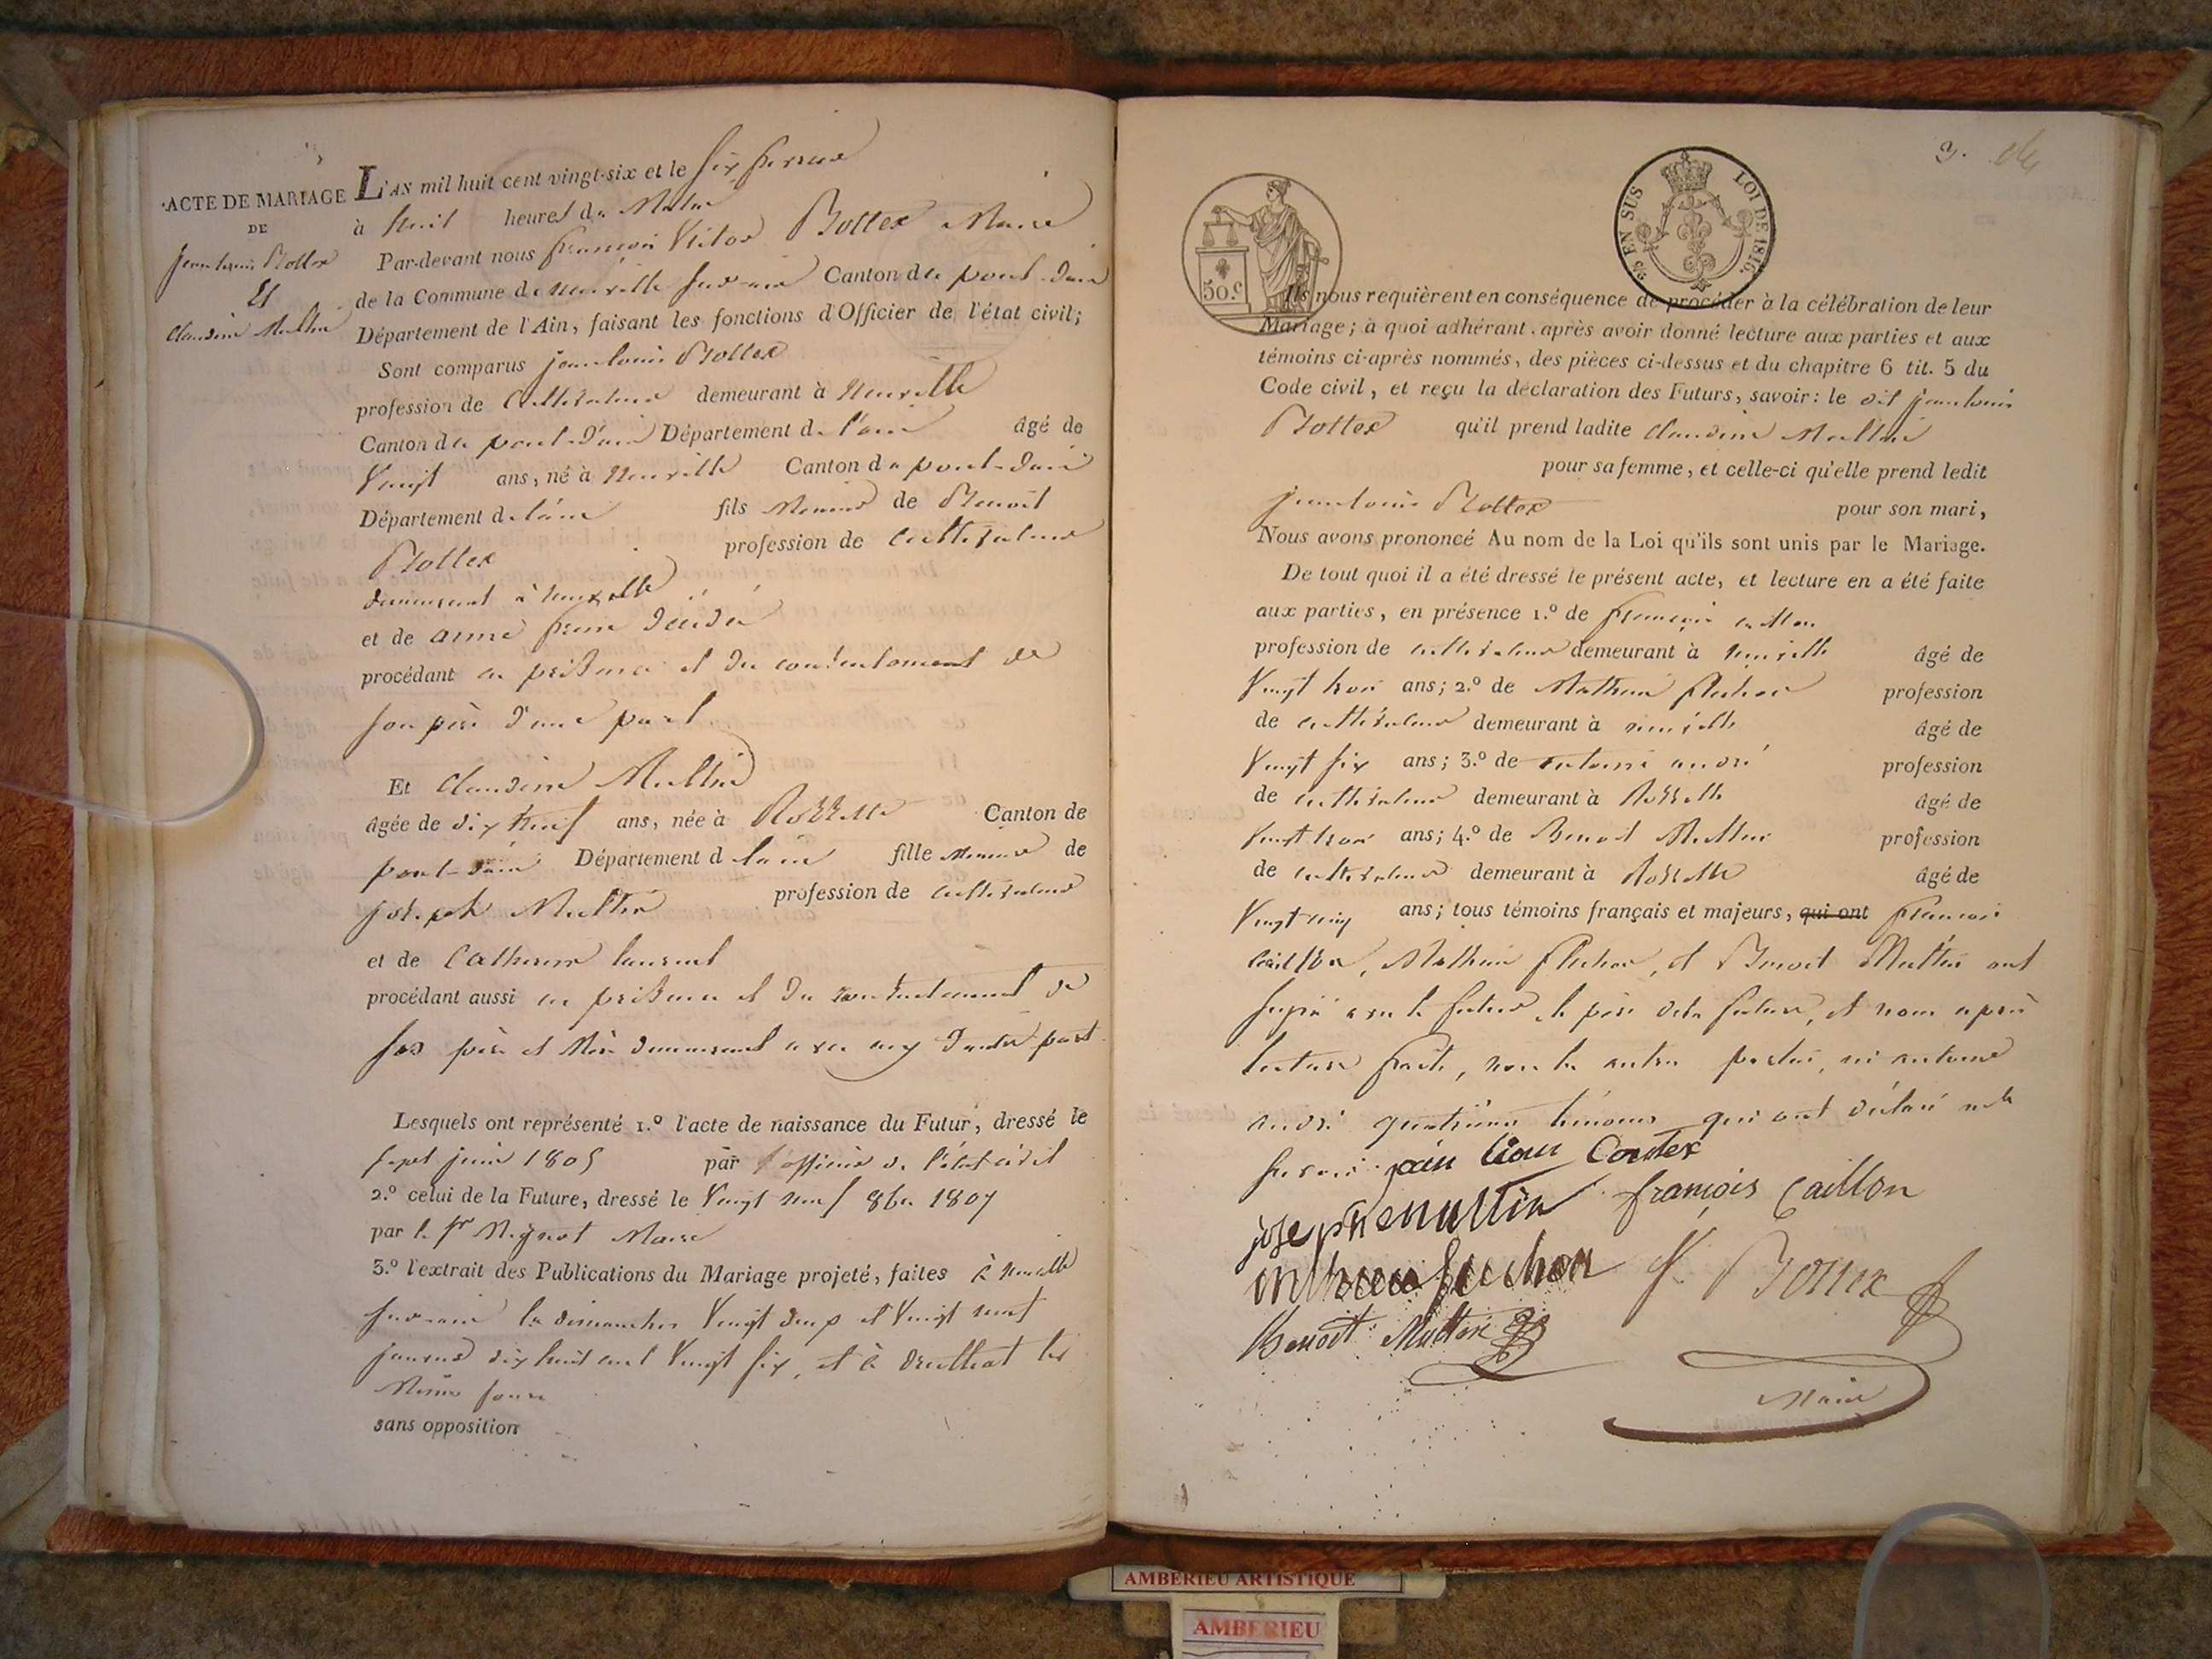 ACTE DE MARIAGE
DE
jean louis Bottex
Et
claudine Multin
L'AN mil huit cent vingt-six et le six fevrier
à huit heures du Matin
Par-devant nous françois Victor Bottex Maire
de la Commune de neuville sur ain Canton de pont-d'ain
Département de l'Ain, faisant les fonctions d'Officier de l'état civil;
Sont comparus jean louis Bottex
profession de cultivateur demeurant à Neuville
Canton de pont-d'ain Département de l'ain âgé de
Vingt ans, né à Neuville Canton de pont-d'ain
Département de l'ain fils Mineur de Benoit
Bottex profession de cultivateur
demeurant à neuville
et de anne
procédant en présence et du consentement de
son père d'une part
Et claudine Multin
âgée de dix huit ans, née à Canton de
pont-d'ain Département d l'ain fille Mineure de
joseph Multin profession de cultivateur
et de Catherine laurent
procédant aussi en présence et du consentement de
ses père et Mère demeurant avec eux d'autre part
Lesquels ont représenté 1.º l'acte de naissance du Futur, dressé le
sept juin 1805 par l'officier de l'état civil
2.º celui de la Future, dressé le Vingt neuf 8bre 1807
par le Sr Mignot Maire
3.º l'extrait des Publications du Mariage projeté, faites à neuville
sur-ain les dimanches Vingt deux et Vingt neuf
janvier dix huit cent Vingt six, et à druillat les
Mêmes jours
sans opposition
3.
50.C
25 EN SUS
LOI DE 1816.
Ils nous requièrent en conséquence de procéder à la célébration de leur
Mariage; à quoi adhérant, après avoir donné lecture aux parties et aux
témoins ci-après nommés, des pièces ci-dessus et du chapitre 6 tit. 5 du
Code civil, et reçu la déclaration des Futurs, savoir: le dit jean louis
Bottex qu'il prend ladite claudine Multin
pour sa femme, et celle-ci qu'elle prend ledit
jean louis Bottex pour son mari,
Nous avons prononcé Au nom de la Loi qu'ils sont unis par le Mariage.
De tout quoi il a été dressé le présent acte, et lecture en a été faite
aux parties, en présence 1.º de françois caillon
profession de cultivateur demeurant à neuville âgé de
Vingt trois ans; 2.º de Mathieu fluchon profession
de cultivateur demeurant à neuville âgé de
Vingt six ans; 3.º de antoine andré profession
de cultivateur demeurant à âgé de
Vingt trois ans; 4.º de Benoit Multin profession
de cultivateur demeurant à âgé de
Vingt cinq ans; tous témoins français et majeurs, qui ont françois
caillon, Mathieu fluchon, et Benoit Multin ont
signé avec le futur, le père de la future, et nous après
lecture faite, non les autres parties, ni antoine
andré quatrième témoins qui ont déclaré ne le
savoir
joseph multin françois Caillon
fluchon f. Bottex
Benoit Multin
Maire
AMBERIEU ARTISTIQUE
AMBERIEU